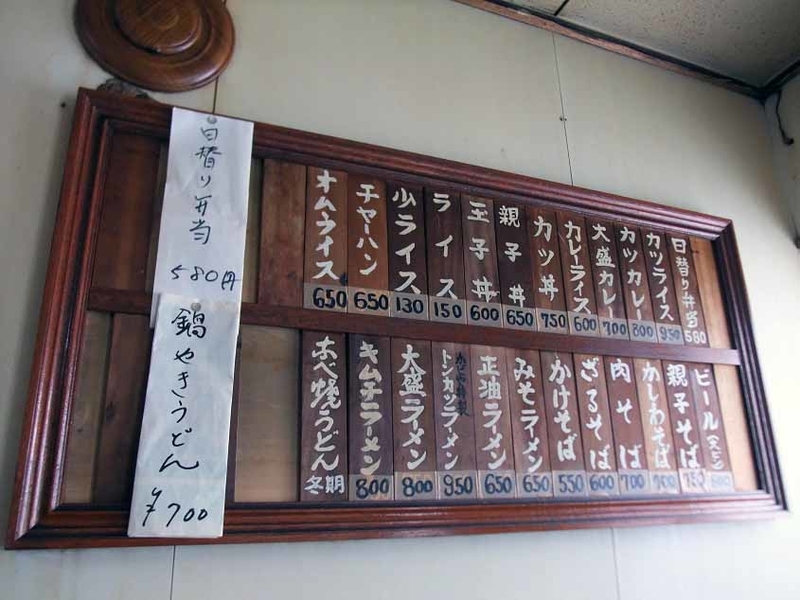 日替り弁当 580
カツライス 950
カツカレー 800
大盛カレー 700
カレーライス 600
カツ丼 750
親子丼 650
玉子丼 600
ライス 150
少ライス 130
チャーハン 650
オムライス 650
ビール(大ビン)
親子そば 750
かしわそば 700
肉そば 700
ざるそば 600
かけそば 550
みそラーメン 650
正油ラーメン 650
トンカツラーメン 950
大盛ラーメン 800
キムチラーメン 800
なべ焼うどん 冬期
日替り弁当
580円
鍋やきうどん
¥700